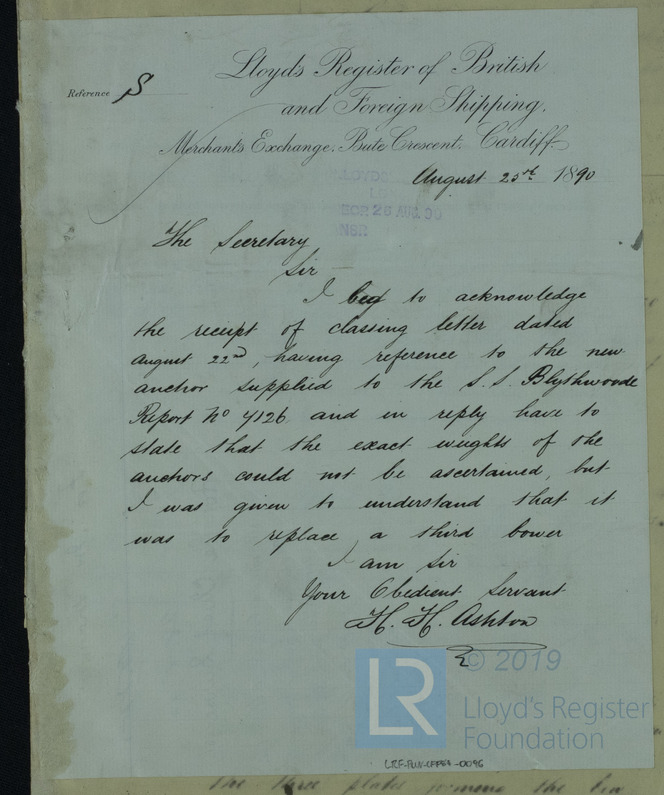 Lloyd's Register of British
and Foreign Shipping.
Reference S
Merchants Exchange, Bute Crescent, Cardiff
August 25th 1890
LLOYDS
26 AUG. 90
The Secretary
Sir
I beg to acknowledge
the receipt of classing letter dated
August 22nd, having reference to the new
anchor supplied to the S.S. Blythwoode
Report No 4126 and in reply have to
state that the exact weights of the
anchors could not be ascertained, but
I was given to understand that it
was to replace a third bower
I am Sir
Your Obedient Servant
H. H. Ashton
© 2019
LR
Lloyd's Register
Foundation
the three plates